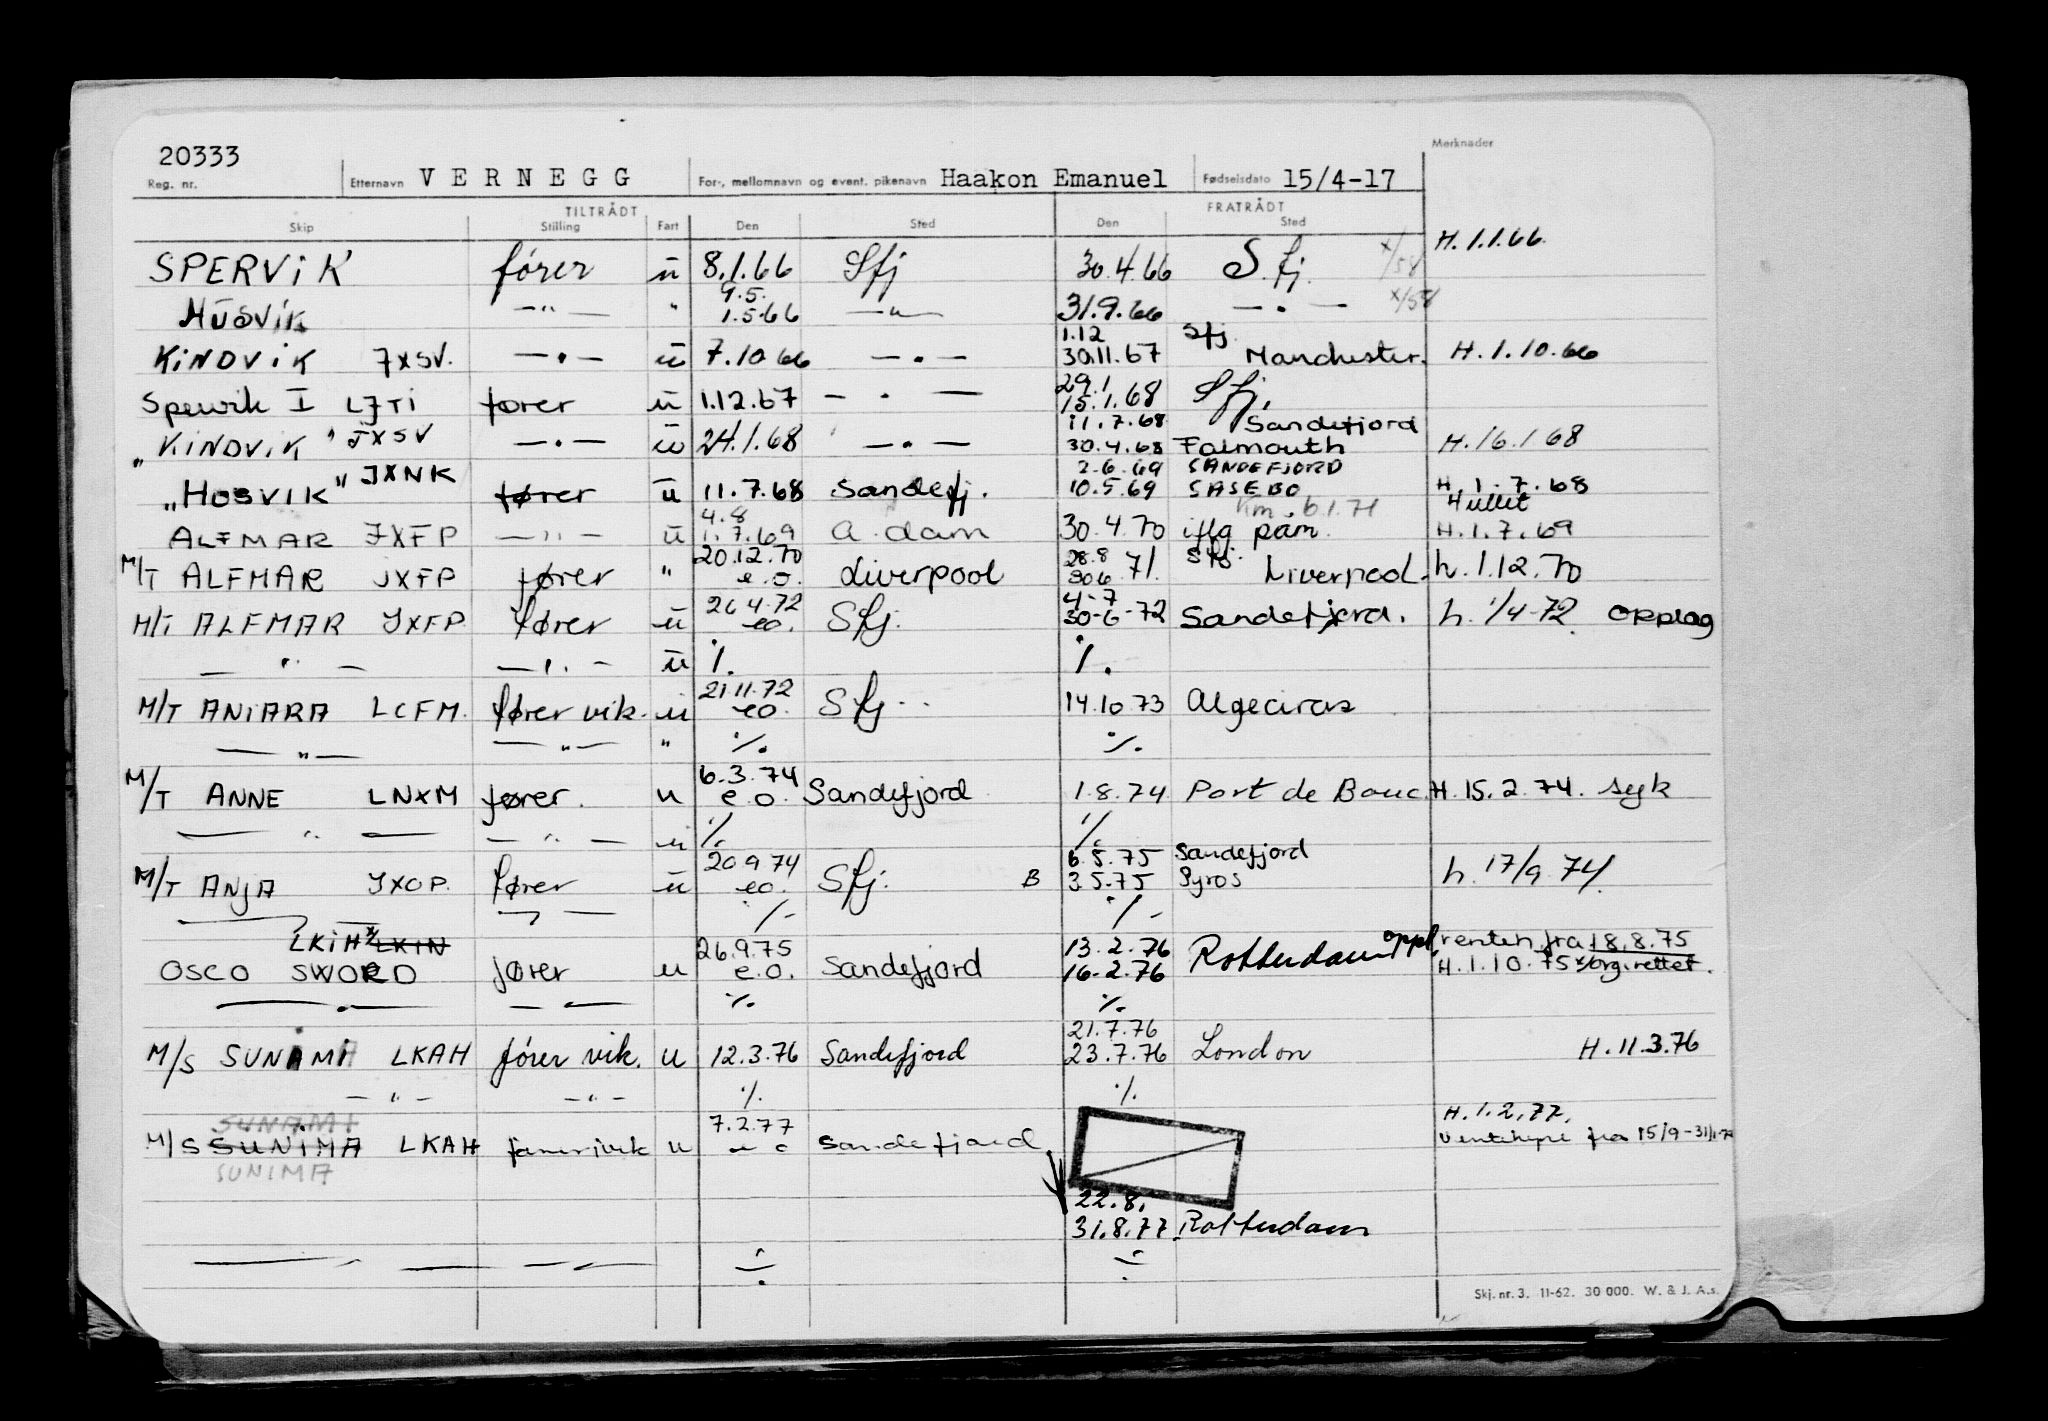 Merknader
20333
Reg. nr. Etternavn VERNEGG For-, mellomnavn og event. pikenavn Haakon Emanuel Fødselsdato 15/4-17
TILTRÅDT FRATRÅDT
Skip Stilling Fart Den Sted Den Sted
H. 1.1.66.
SPERVIK fører ū 8.1.66 Sfj 30.4.66 S.fj. x/58
9.5.
HUSVIK — " — " 1.5.66 — " — 31.9.66 — . — x/58
1.12 Sfj.
KINDVIK JXSV. — . — ū 7.10.66 — . — 30.11.67 Manchester. H. 1.10.66
29.1
Spervik I LJTI fører ū 1.12.67 — . — 15.1.68 Sfj.
11.7.68 Sandefjord
"KINDVIK" JXSV — . — ū 24.1.68 — . — 30.4.68 Falmouth H. 16.1 68
2.6.69 SANDEFJORD
"HOSVIK" JXNK fører ū 11.7.68 Sandefj. 10.5.69 SASEBO H. 1.7.68
4.8 6.1.71
ALFMAR JXFP — " — ū 1.7.69 A.dam 30.4.70 iflg påm. H. 1.7.69
20.12.70 28.8 Sfj.
M/T ALFMAR JXFP fører " e.o. Liverpool 30.6 71. Liverpool. h. 1.12.70
26.4.72 4-7
M/T ALFMAR JXFP fører ū eo. Sfj. 30-6-72 Sandefjord. h. 1/4-72. opplag
— " — — " — ū ./. ./.
21.11.72
M/T ANIARA LCFM. fører vik. u eo. Sfj. 14.10.73 Algeciras
— " — — " — " ./. ./.
6.3.74
M/T ANNE LNXM fører. u e.o. Sandefjord 1.8.74 Port de Bouc. H. 15.2.74. syk
— " — — " — u ./. ./.
20.9.74 6.5.75 Sandefjord
M/T ANJA JXOP. fører ū eo. Sfj. B 3.5.75 Syros h. 17/9 74.
— " — — " — ./. ./.
LKIH x/ LKIN 26.9.75 13.2.76 oppl. fra 18.8.75
OSCO SWORD fører u e.o. Sandefjord 16.2.76 Rotterdam H. 1.10.75 x/org. rettet.
— . — — — ./. ./.
21.7.76
M/S SUNAMI LKAH fører vik. u 12.3.76 Sandefjord 23.7.76 London H. 11.3.76
— " — — " — ./. ./.
SUNAMI 7.2.77 H. 1.2.77.
M/S SUNIMA LKAH u e o Sandefjord fra 15/9-31/1-77
SUNIMA
22.8.
31.8.77. Rotterdam
— — — ./. ./.
Skj. nr. 3. 11-62. 30 000. W. & J. A.s.